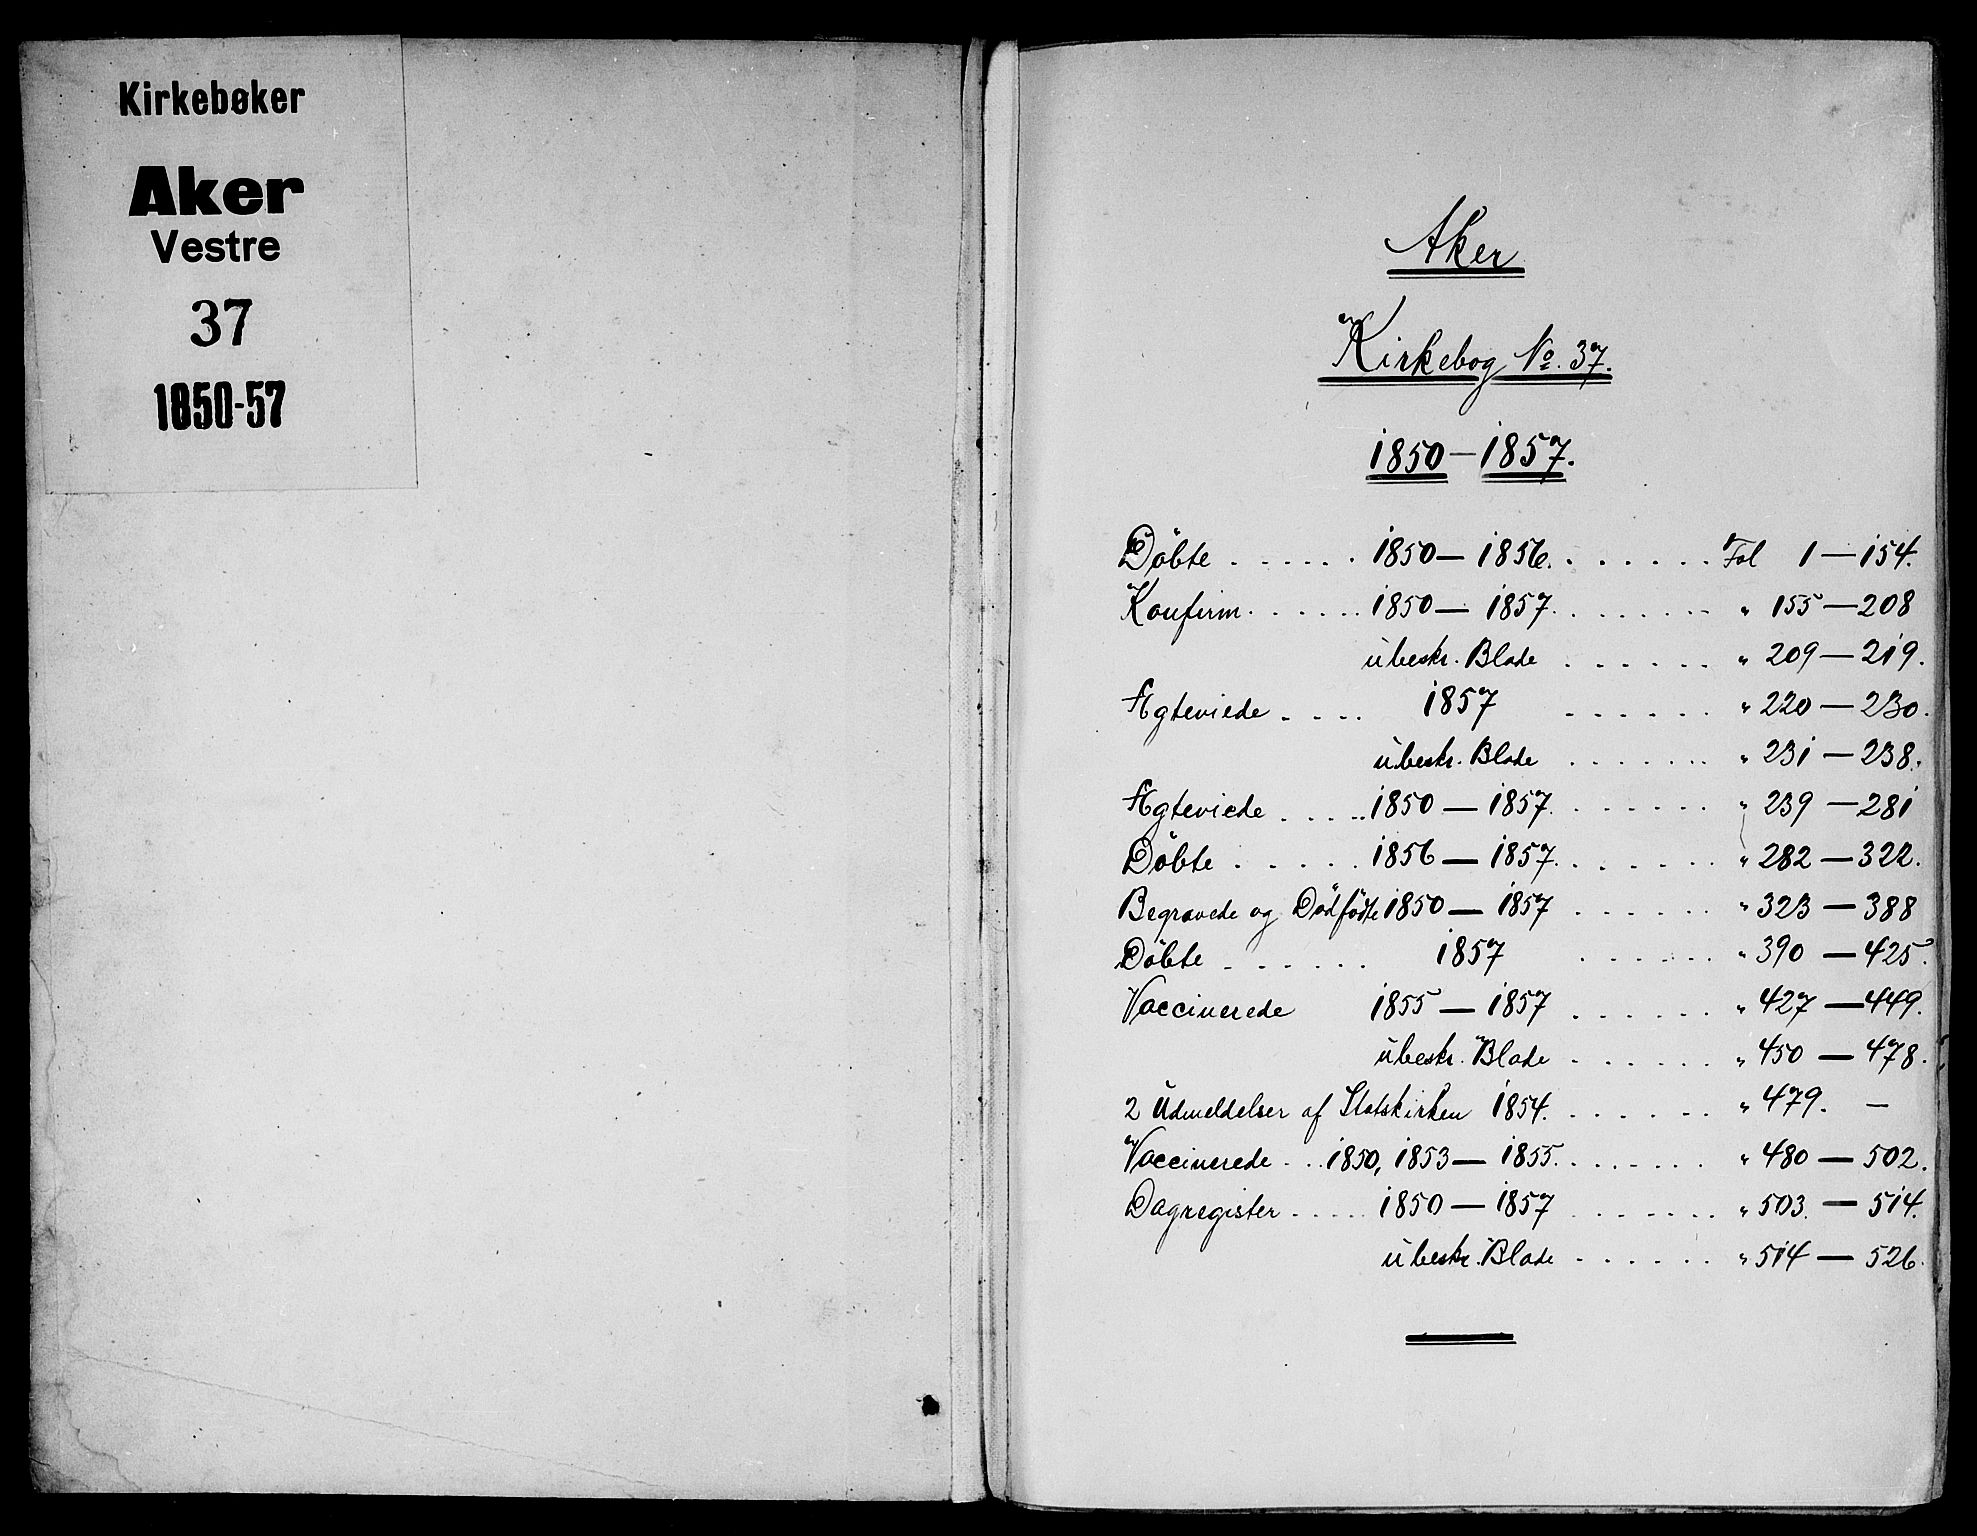 Kirkebøker
Aker
Vestre
37
1850-57
Aker
Kirkebog No. 37.
1850 — 1857.
Döbte . . . . . . 1850 — 1856. . . . . . . Fol 1 — 154.
Konfirm. . . . . . 1850 — 1857. . . . . . . " 155 — 208
übeskr. Blade . . . . . . " 209 — 219.
Ægteviede . . . . 1857 . . . . . . " 220 — 230.
übeskr. Blade . . . . . . " 231 — 238.
Ægteviede . . . . . 1850 — 1857. . . . . . . " 239 — 281
Döbte . . . . . 1856 — 1857. . . . . . . " 282 — 322.
Begravede og Dödfödte 1850 — 1857 . . . . . . " 323 — 388
Döbte . . . . . . 1857 . . . . . . " 390 — 425.
Vaccinerede 1855 — 1857 . . . . . . " 427 — 449.
übeskr. Blade . . . . . . " 450 — 478.
2 Üdmeldelser af Statskirken 1854. . . . . . . " 479. —
Vaccinerede . . . 1850, 1853 — 1855. . . . . . . " 480 — 502.
Dagregister . . . . . 1850 — 1857 . . . . . . . " 503. — 514.
übeskr. Blade . . . . . . " 514 — 526.